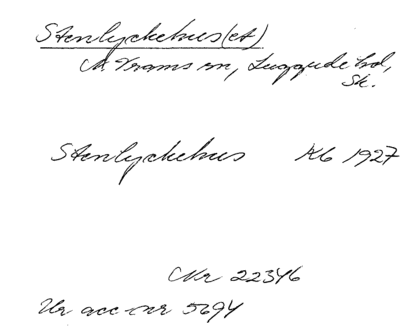 Stenlyckehus(et)
N. Vrams sn, Luggude hd,
Sk.
Stenlyckehus Kb 1927
Nr 22346
Ur acc-nr 5694